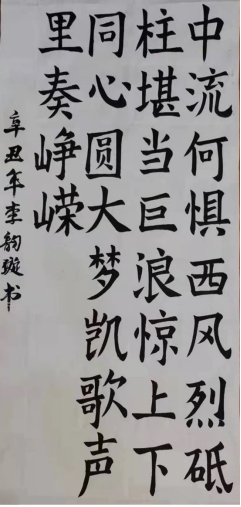 中流何惧西风烈砥
柱堪当巨浪惊上下
同心圆大梦凯歌声
里奏峥嵘
辛丑年李韵璇书